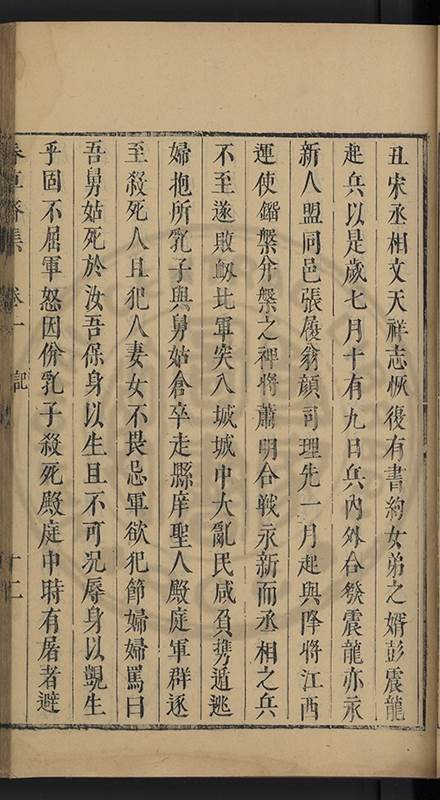 丑宋丞相文天祥志恢復有書約女弟之婿彭震龍
起兵以是歲七月十有九日兵內外合發震龍亦永
新人盟同邑張履翁顏司理先一月起與降將江西
運使鎦槃弁槃之裨將蕭明合戰永新而丞相之兵
不至遂敗衂比軍突入城城中大亂民咸負攜遁逃
婦抱所乳子與舅姑倉卒走縣庠聖人殿庭軍群逐
至殺死人且犯人妻女不畏忌軍欲犯節婦婦罵曰
吾舅姑死於汝吾保身以生且不可況辱身以覬生
乎固不屈軍怒因併乳子殺死殿庭中時有屠者避
齋集 卷十 記 十二